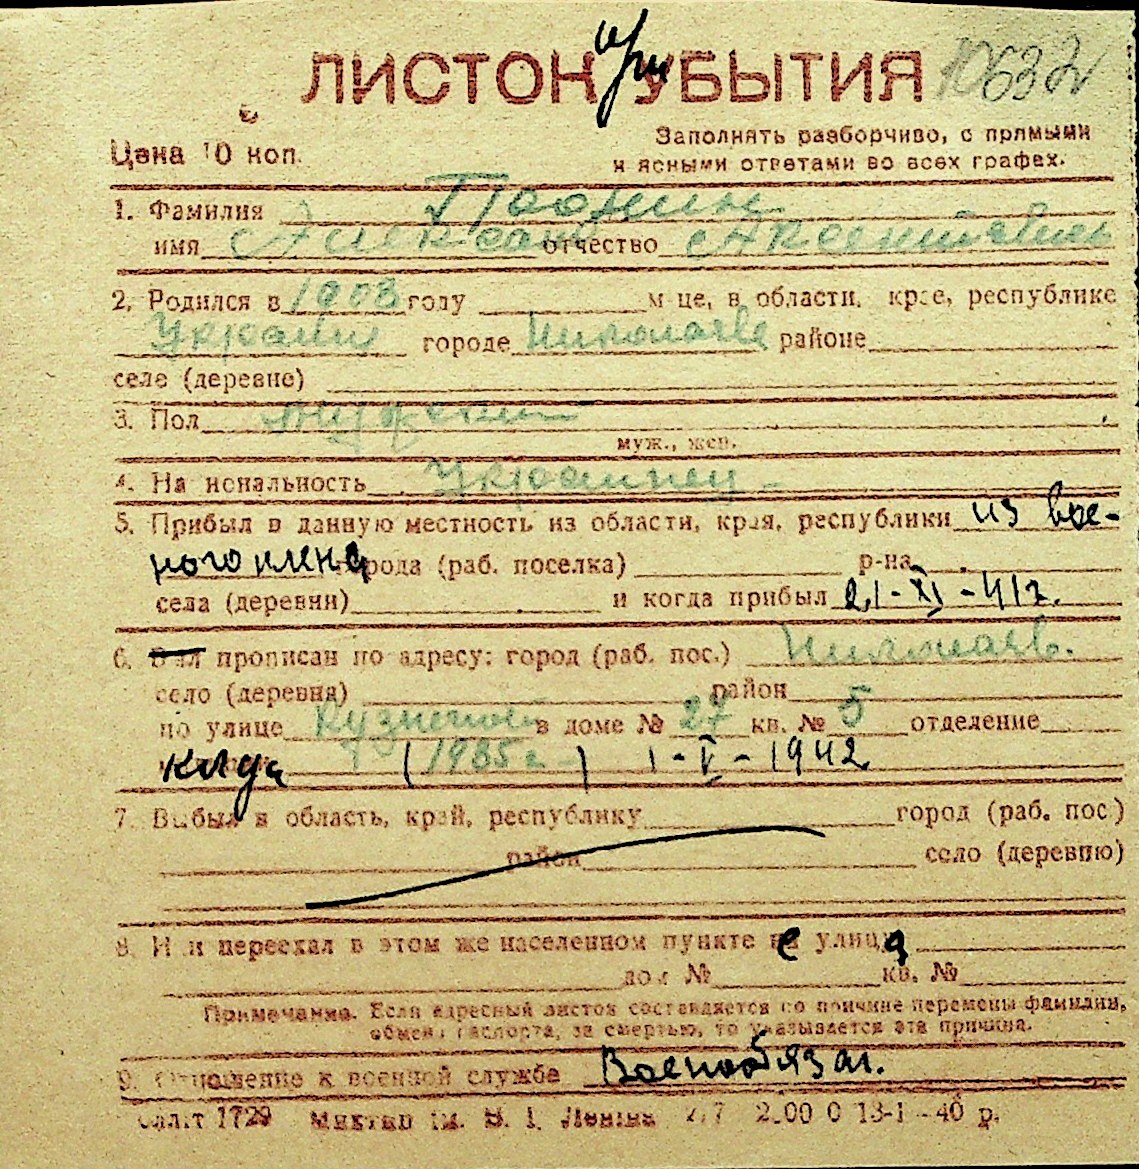 ЛИСТОК при УБЫТИЯ 10632
Цена 10 коп.
Заполнять разборчиво, с прямыми
и ясными ответами во всех графах.
1. Фамилия
имя Александр отчество
2. Родился в 1908 году м-це, в области, крае, республике
Украина городе Николаеве районе
селе (деревне)
3. Пол мужской
муж., жен.
4. Национальность Украинец
5. Прибыл в данную местность из области, края, республики из вое-
ного плена города (раб. поселка) р-на
села (деревни) и когда прибыл 21-XI-41г.
6. Был прописан по адресу: город (раб. пос.) Николаев.
село (деревня) район
по улице Кузнечной в доме № 27 кв. № 5 отделение
когда (1935г.) 1-V-1942
7. Выбыл в область, край, республику город (раб. пос.)
район село (деревню)
8. Или переехал в этом же населенном пункте с улица
дом № кв. №
Примечание. Если адресный листок составляется по причине перемены фамилии,
обмена паспорта, за смертью, то указывается эта причина.
9. Отношение к военной службе Военнообязан.
1729 В. І. Леніна